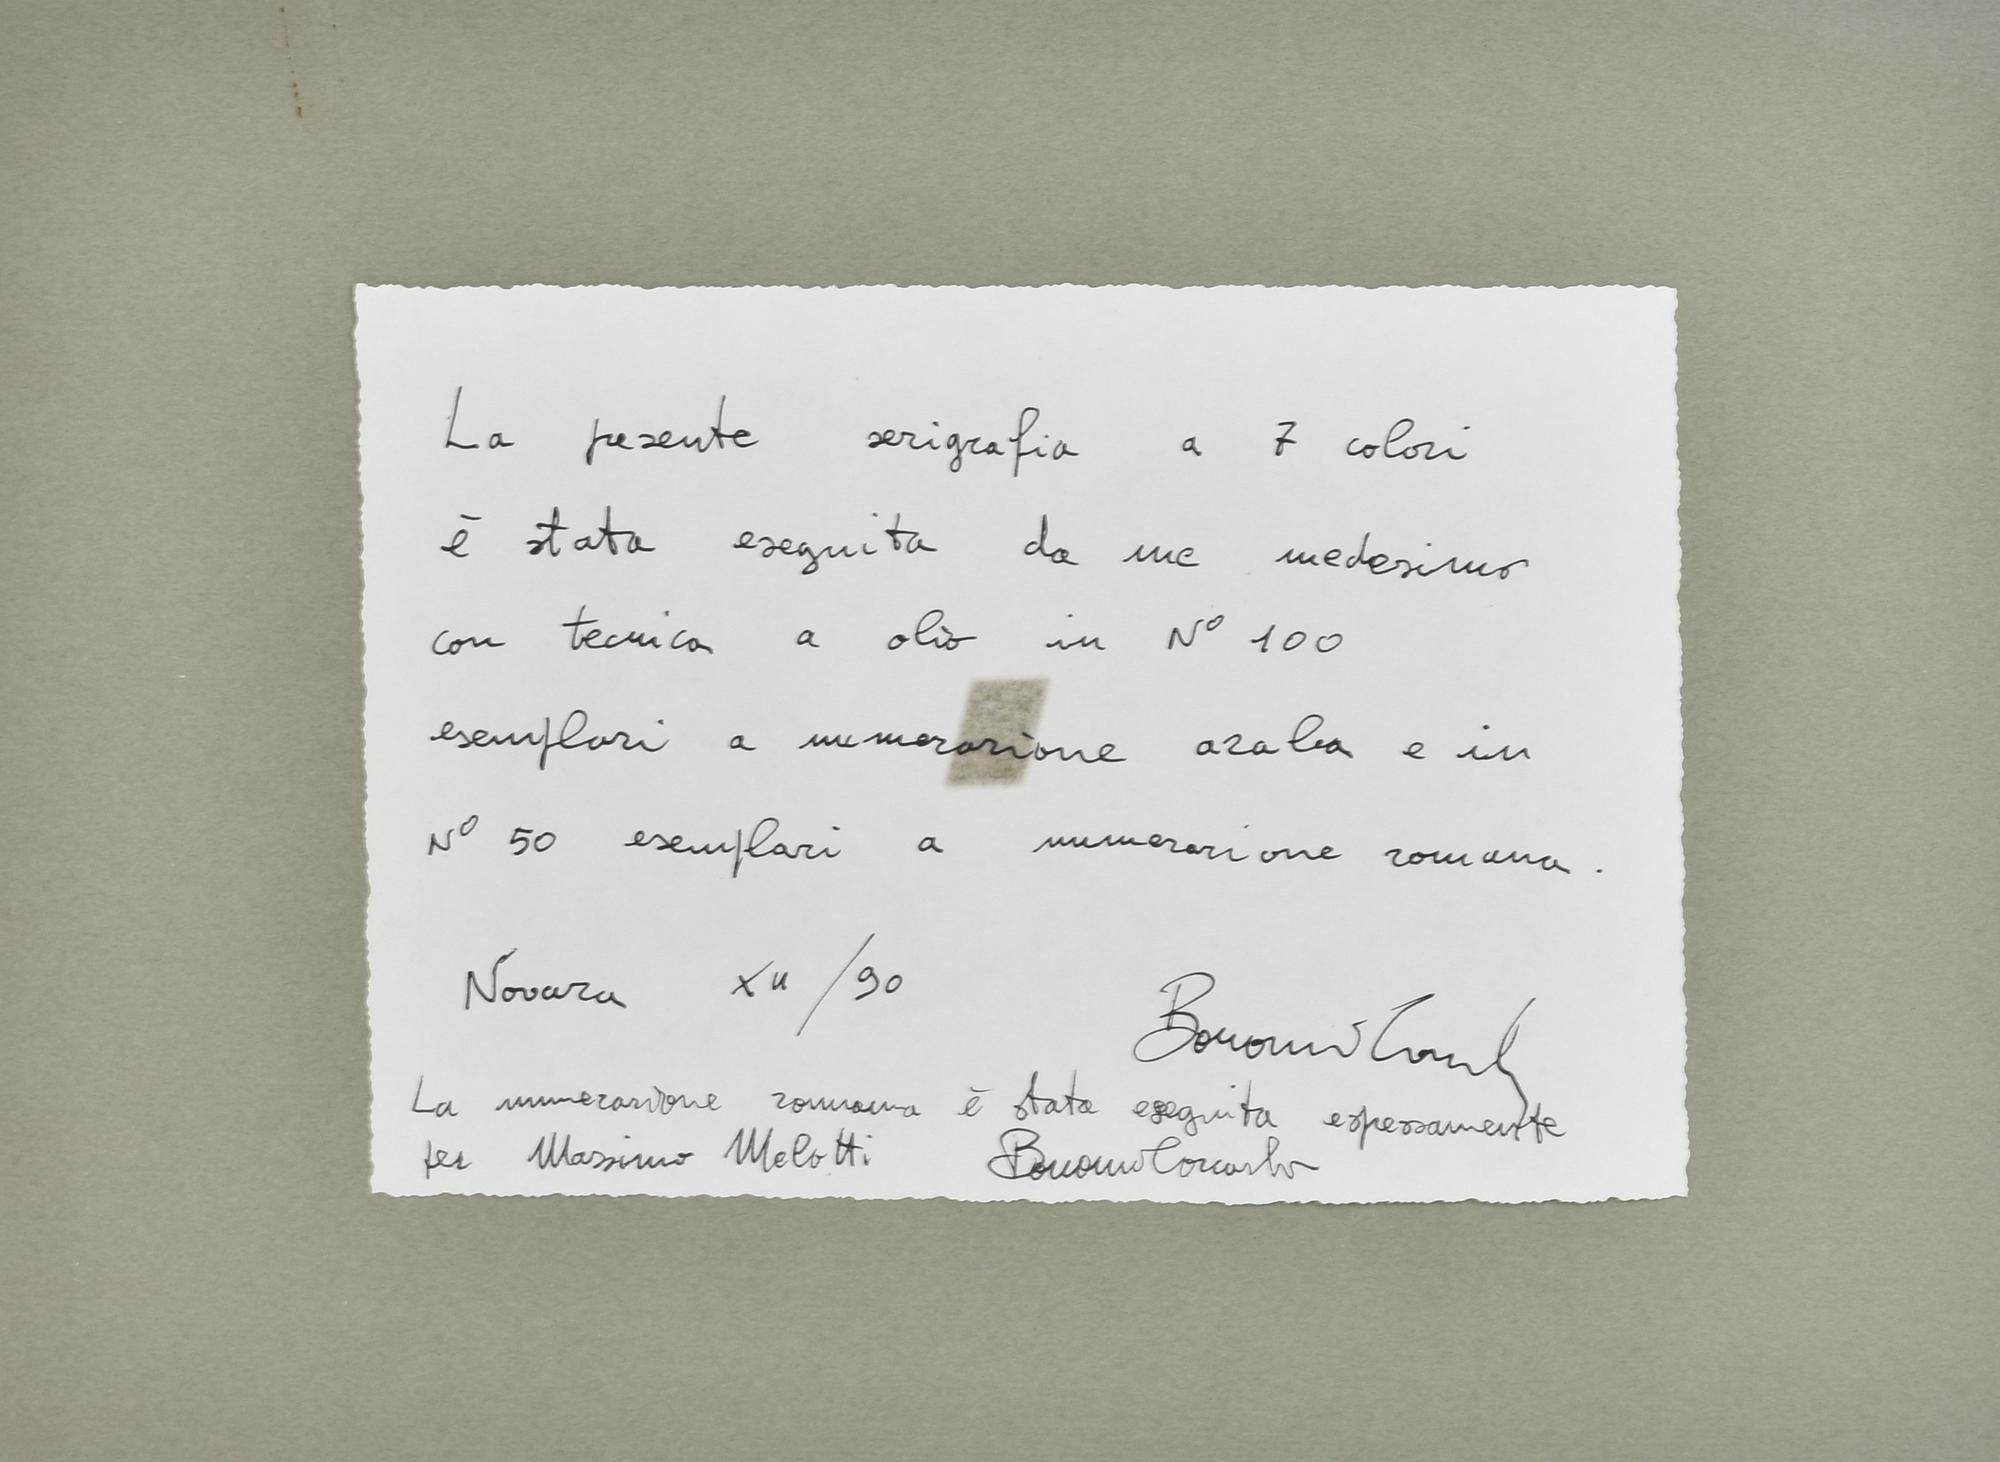 La presente serigrafia a 7 colori
è stata eseguita da me medesimo
con tecnica a olio in N° 100
esemplari a numerazione araba e in
N° 50 esemplari a numerazione romana.
Novara XII/90
Bonomi
La numerazione romana è stata eseguita espressamente
per Massimo Melotti Bonomi